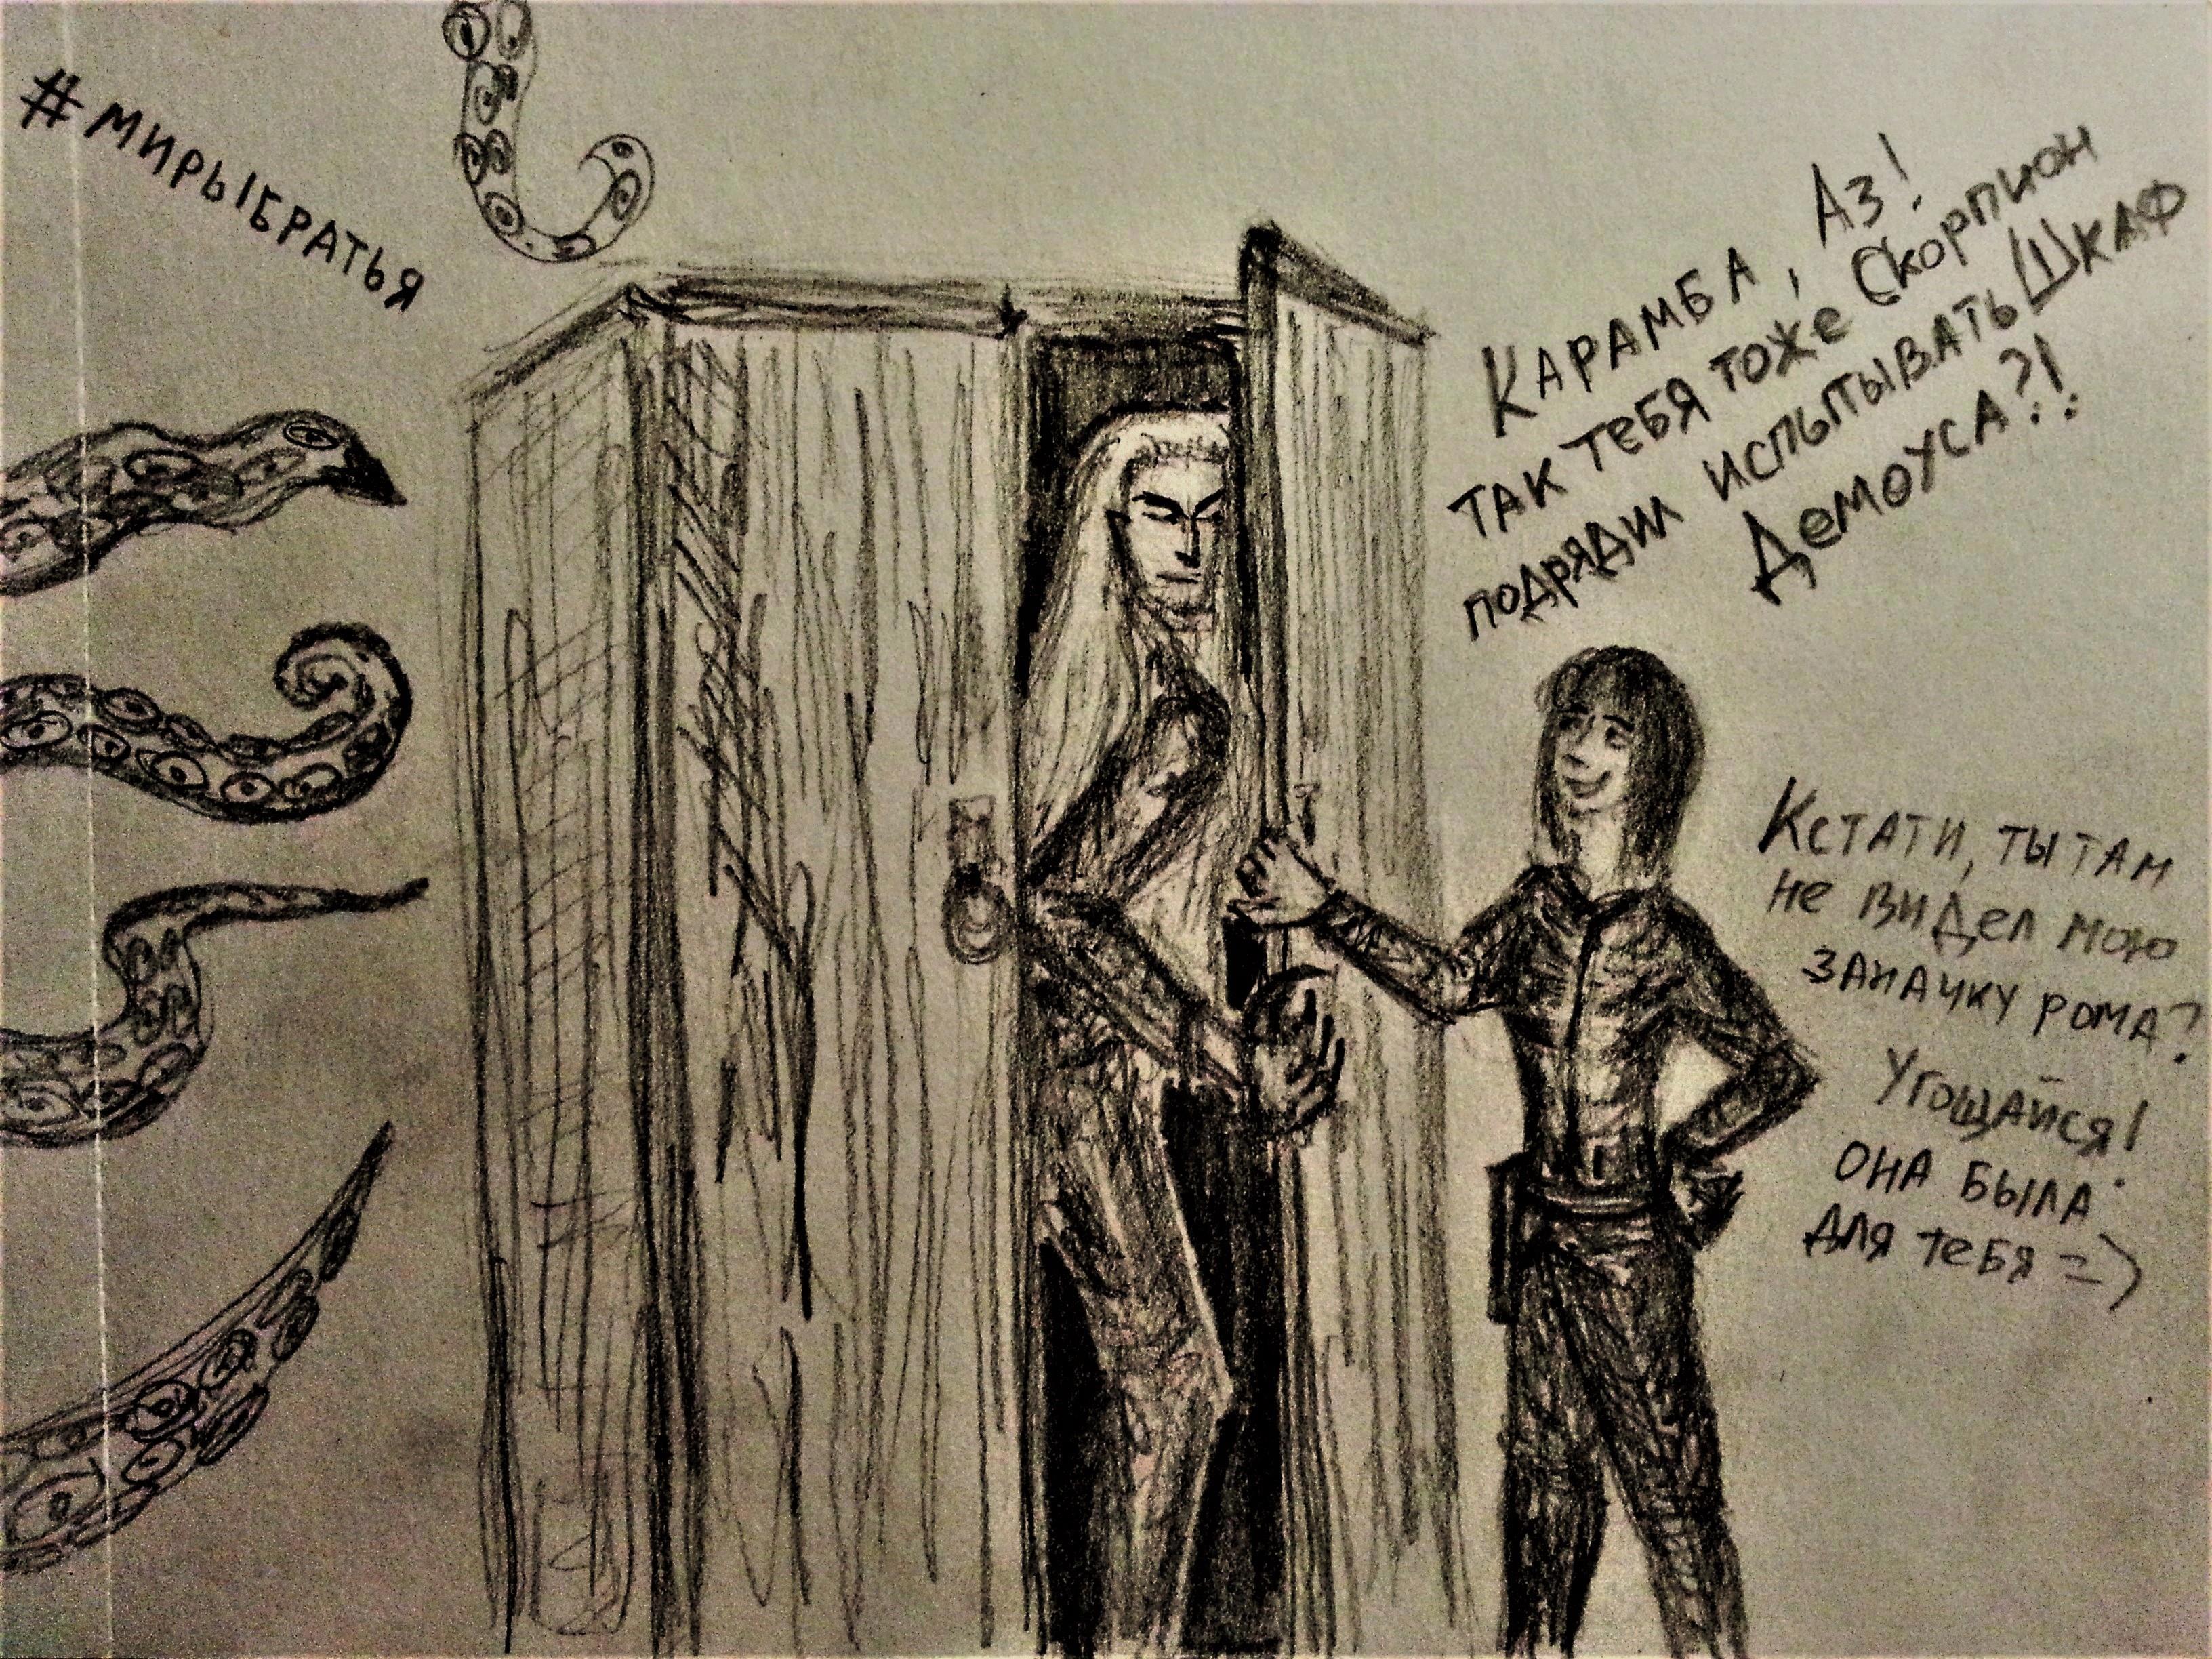 #МИРЫБРАТЬЯ
КАРАМБА, АЗ!
ТАК ТЕБЯ ТОЖЕ СКОРПИОН
ПОДРЯДИЛ ИСПЫТЫВАТЬ ШКАФ
ДЕМОУСА?!
КСТАТИ, ТЫ ТАМ
НЕ ВИДЕЛ МОЮ
ЗАНАЧКУ РОМА?
УГОЩАЙСЯ!
ОНА БЫЛА
ДЛЯ ТЕБЯ =)